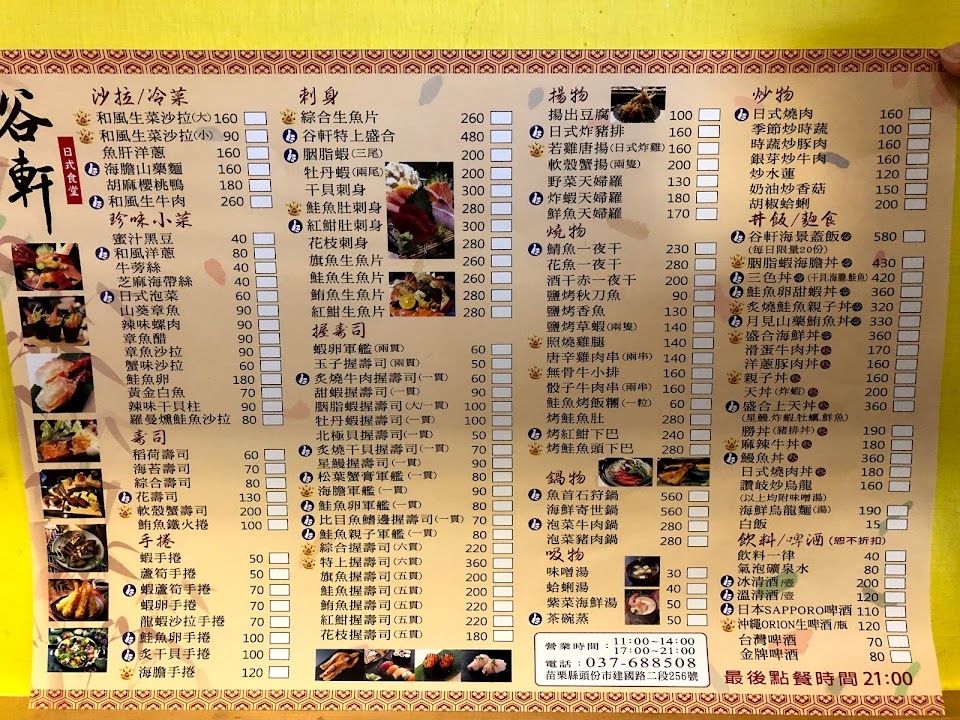 谷軒
日式食堂
沙拉/冷菜
和風生菜沙拉(大) 160
和風生菜沙拉(小) 90
魚肝洋蔥 160
海膽山藥麵 160
胡麻櫻桃鴨 180
和風生牛肉 260
珍味小菜
蜜汁黑豆 40
和風洋蔥 80
牛蒡絲 40
芝麻海帶絲 40
日式泡菜 60
山葵章魚 90
辣味螺肉 90
章魚醋 90
章魚沙拉 90
蟹味沙拉 60
鮭魚卵 180
黃金白魚 70
辣味干貝柱 90
羅曼燻鮭魚沙拉 80
壽司
稻荷壽司 60
海苔壽司 70
綜合壽司 80
花壽司 130
軟殼蟹壽司 200
鮪魚鐵火捲 100
手捲
蝦手捲 50
蘆筍手捲 50
蝦蘆筍手捲 70
蝦卵手捲 70
龍蝦沙拉手捲 70
鮭魚卵手捲 100
炙干貝手捲 100
海膽手捲 120
刺身
綜合生魚片 260
谷軒特上盛合 480
胭脂蝦(三尾) 200
牡丹蝦(兩尾) 200
干貝刺身 300
鮭魚肚刺身 300
紅魽肚刺身 300
花枝刺身 200
旗魚生魚片 260
鮭魚生魚片 280
鮪魚生魚片 280
紅魽生魚片 280
握壽司
蝦卵軍艦(兩貫) 60
玉子握壽司(兩貫) 50
炙燒牛肉握壽司(一貫) 60
甜蝦握壽司(一貫) 60
胭脂蝦握壽司(大/一貫) 100
牡丹蝦握壽司(一貫) 100
北極貝握壽司(一貫) 50
炙燒干貝握壽司(一貫) 70
星鰻握壽司(一貫) 90
松葉蟹膏軍艦(一貫) 80
海膽軍艦(一貫) 90
鮭魚卵軍艦(一貫) 80
比目魚鰭邊握壽司(一貫) 70
鮭魚親子軍艦(一貫) 80
綜合握壽司(六貫) 220
特上握壽司(六貫) 360
旗魚握壽司(五貫) 200
鮭魚握壽司(五貫) 200
鮪魚握壽司(五貫) 220
紅魽握壽司(五貫) 220
花枝握壽司(五貫) 180
揚物
揚出豆腐 100
日式炸豬排 160
若雞唐揚(日式炸雞) 160
軟殼蟹揚(兩隻) 200
野菜天婦羅 130
炸蝦天婦羅 180
鮮魚天婦羅 170
燒物
鯖魚一夜干 230
花魚一夜干 260
酒干赤一夜干 200
鹽烤秋刀魚 90
鹽烤香魚 130
鹽烤草蝦(兩隻) 140
照燒雞腿 140
唐辛雞肉串(兩串) 140
無骨牛小排 160
骰子牛肉串(兩串) 140
鮭魚烤飯糰(一粒) 60
烤鮭魚肚 280
烤紅魽下巴 240
烤鮭魚頭下巴 280
鍋物
魚首石狩鍋 560
海鮮寄世鍋 560
泡菜牛肉鍋 280
泡菜豬肉鍋 280
吸物
味噌湯 30
蛤蜊湯 40
紫菜海鮮湯 50
茶碗蒸 50
營業時間：11:00~14:00
17:00~21:00
電話：037-688508
苗栗縣頭份市建國路二段256號
炒物
日式燒肉 160
季節炒時蔬 100
時蔬炒豚肉 160
銀芽炒牛肉 160
炒水蓮 120
奶油炒香菇 150
胡椒蛤蜊 200
丼飯/麵食
谷軒海景蓋飯 580
(每日限量20份)
胭脂蝦海膽丼 430
三色丼(干貝,海膽,鮭魚) 420
鮭魚卵甜蝦丼 360
炙燒鮭魚親子丼 320
月見山藥鮪魚丼 330
盛合海鮮丼 360
滑蛋牛肉丼 170
洋蔥豚肉丼 160
親子丼 160
天丼(炸蝦) 200
盛合上天丼 360
(星鰻,炸蝦,牡蠣,鮮魚)
勝丼(豬排丼) 190
麻辣牛丼 180
鰻魚丼 360
日式燒肉丼 180
讚岐炒烏龍 160
(以上均附味噌湯)
海鮮烏龍麵(湯) 190
白飯 15
飲料/啤酒(恕不折扣)
飲料一律 40
氣泡礦泉水 80
冰清酒/壺 200
溫清酒/壺 120
日本SAPPORO啤酒 110
沖繩ORION生啤酒/瓶 120
台灣啤酒 70
金牌啤酒 80
最後點餐時間 21:00